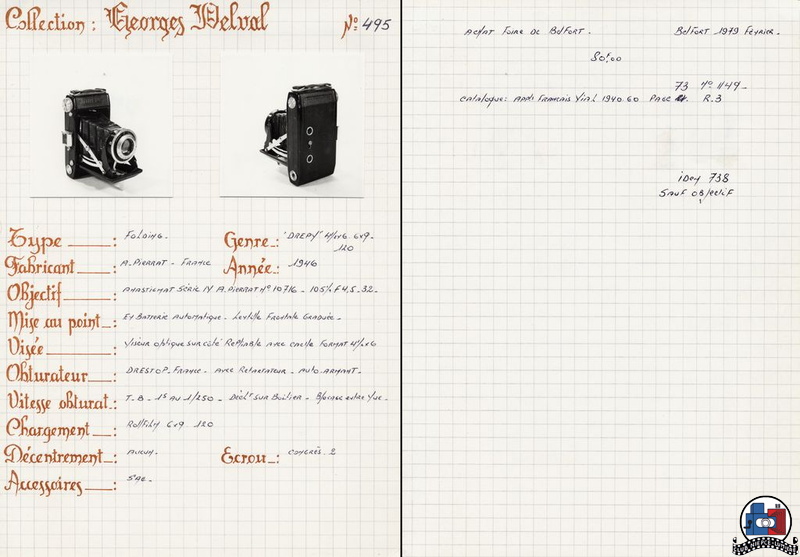 Collection : Georges Delval
No 495
Type : Folding.
Genre : "DREPY" 4½x6 6x9.
120
Fabricant : A. Pierrat - France
Année : 1946
Objectif : Anastigmat Série IV A. Pierrat No 10716 - 105% F 4,5 . 32 -
Mise au point : Et Batterie Automatique - Lentille Frontale Graduée -
Visée : Viseur oblique sur côté Repliable avec cache format 4½x6
Obturateur : DRESTOP. France - avec Retardateur - auto-armant -
Vitesse obturat : T-B - 1s au 1/250 - Déclr sur Boitier -
Chargement : Rollfilm 6x9 120
Décentrement : aucun -
Ecrou : congrès . 2
Accessoires : Sac -
Achat Foire de Belfort .
Belfort 1979 Février .
80F,00
73 No 1149 -
catalogue: App. Français Vial 1940.60 Page R.3
idem 738
Sauf objectif